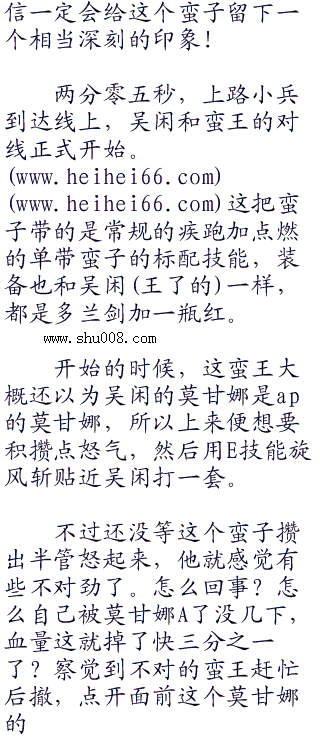 信一定会给这个蛮子留下一
个相当深刻的印象！
两分零五秒，上路小兵
到达线上，吴闲和蛮王的对
线正式开始。
(www.heihei66.com)
(www.heihei66.com)这把蛮
子带的是常规的疾跑加点燃
的单带蛮子的标配技能，装
备也和吴闲(王了的)一样，
都是多兰剑加一瓶红。
www.shu008.com
开始的时候，这蛮王大
概还以为吴闲的莫甘娜是ap
的莫甘娜，所以上来便想要
积攒点怒气，然后用E技能旋
风斩贴近吴闲打一套。
不过还没等这个蛮子攒
出半管怒起来，他就感觉有
些不对劲了。怎么回事？怎
么自己被莫甘娜A了没几下，
血量这就掉了快三分之一
了？察觉到不对的蛮王赶忙
后撤，点开面前这个莫甘娜
的